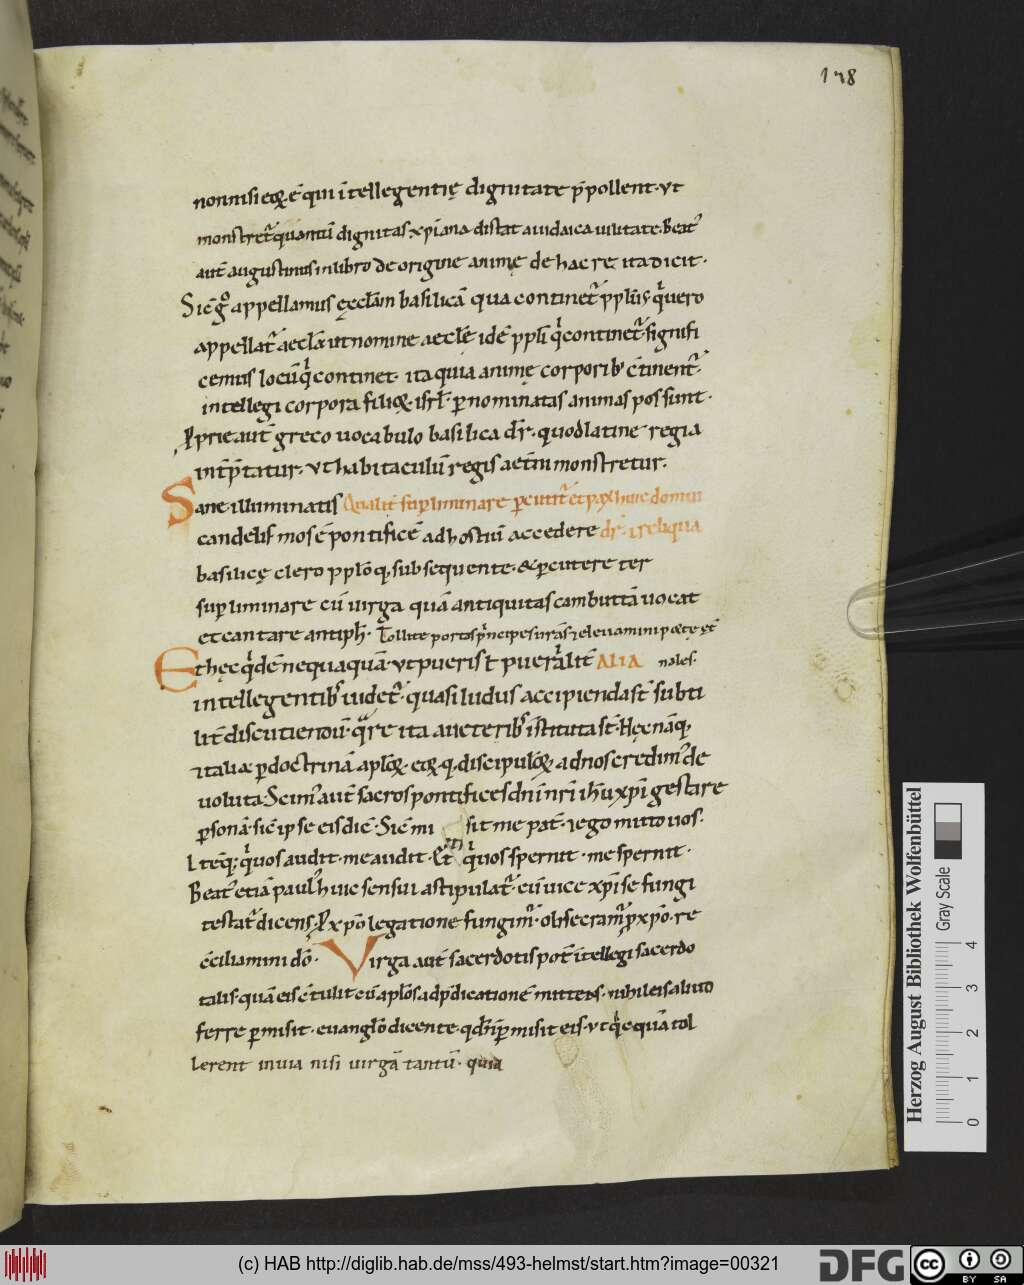 178
non nisi eoꝝ ē qui ītellegentię dignitate p̄pollent· ut
monstret᷑ quantū dignitas xp̄iana distat a iudaica uilitate· Beat᾽
aut̄ augustinus in libro de origine animę de hac re ita dicit·
Sic g̊ appellamus ęccl̄am basilicā qua continet᷑ ppl̄us q̄ uero
appellat᷑ aeccl̄a ut nomine aeccl̄e idē ppl̄i q̄ continet᷑ signifi
cemus locū q̄ continet· ita quia animę corporib᾽ c̄tinent᷑·
intellegi corpora filioꝝ isrl̄ p̱nominatas animas possunt·
Ꝓprie aut̄ greco uocabulo basilica dr̄· quod latine regia
int̄p̄tatur· ut habitaculū regis aet̄ni monstretur·
Sane illuminatis Qualit̄ sup̱liminare p̱cutit᷑ et pax huic domui
candelis mos ē pontificē ad hostiū accedere dr̄· ⁊ reliqua
basilicę clero pplōq, subsequente· & p̱cutere ter
sup̱liminare cū uirga quā antiquitas cambuttā uocat
et cantare antiph̄· Tollite portas p̄ncipes ur̄as ⁊ eleuamini portę ęt̄
Et hęc q̄dē nequaquā· ut pueris ł pueralit̄ ALIA nales·
intellegentib᾽ uidet᷑· quasi ludus accipienda st̄ subti
lit̄ discutiendū· quare ita a ueterib᾽ īstituta st̄· Hęc nāq,
⁊ talia ex p̱ doctrinā apl̄oꝝ· eoꝝq, discipuloꝝ ad nos credim᾽ de
uoluta· Scim᾽ aut̄ sacros pontifices dn̄i nr̄i ih̄u xp̄i gestare
p̱sonā· sic ipse eis dic̄· Sic mi sit me pat̄· ⁊ ego mitto uos·
Iteq,; q̄ uos audit· me audit· Et q̄ uos spernit· me spernit·
Beat᾽ etiā paul᾽ huic sensui astipulat᷑· cū uice xp̄i se fungi
testat᷑ dicens· Ꝓ xp̄o legatione fungim᷑· obsecram᾽ ꝓ xp̄o· re
c̄ciliamini dō· Virga aut̄ sacerdotis pot̄ ītellegi sacerdo
talis quā eis c̄tulit cū apl̄os ad p̄dicationē mittens· nihil eis aliud
ferre p̱misit· euangl̄o dicente· qd̄ n̄ p̱misit eis· ut q̄cquā tol
lerent in uia nisi uirgā tantū· quia
Herzog August Bibliothek Wolfenbüttel
Gray Scale
0 1 2 3 4
(c) HAB http://diglib.hab.de/mss/493-helmst/start.htm?image=00321
DFG
cc BY SA